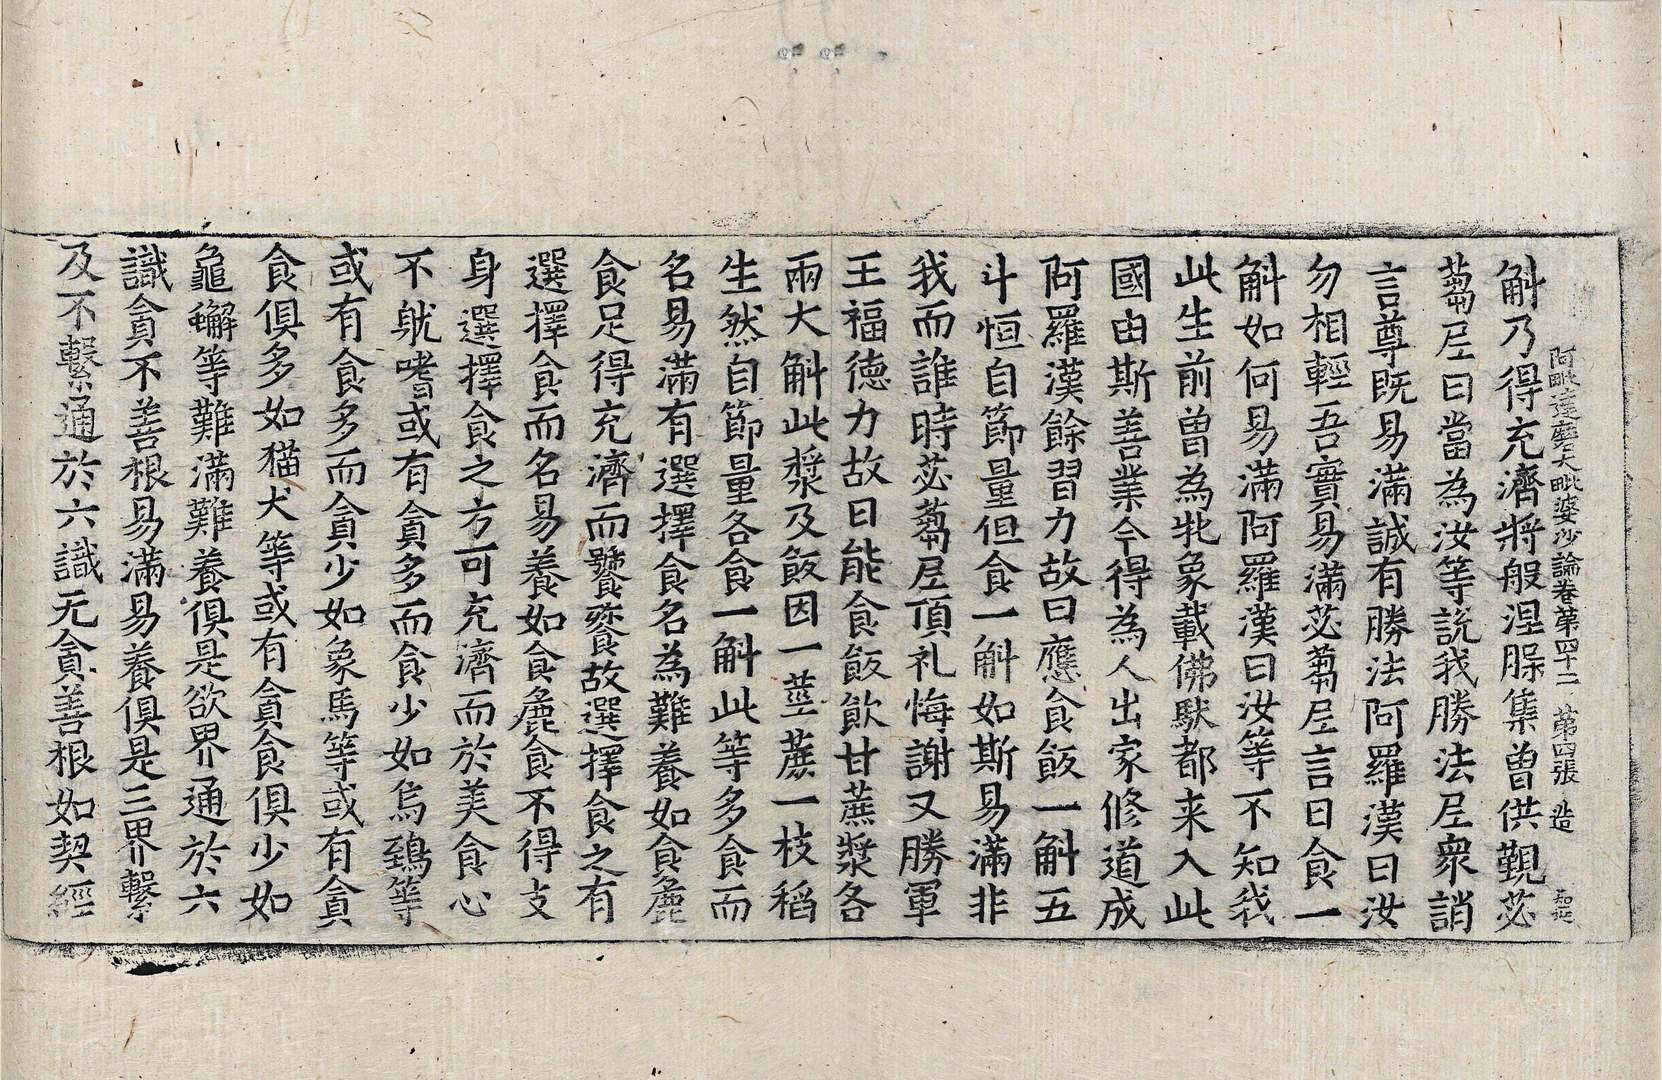 阿毗達磨大毗婆沙論卷第四十二　第四張　造
斛乃得充濟將般涅脲集曾供覲苾
蒭尼曰當為汝等說我勝法尼衆誚
言尊既易滿誠有勝法阿羅漢曰汝
勿相輕吾實易滿苾蒭尼言日食一
斛如何易滿阿羅漢曰汝等不知我
此生前曾為牝象載佛馱都来入此
國由斯善業今得為人出家修道成
阿羅漢餘習力故日應食飯一斛五
斗恒自節量但食一斛如斯易滿非
我而誰時苾蒭尼頂礼悔謝又勝軍
王福德力故日能食飯飲甘蔗漿各
兩大斛此漿及飯因一莖蔗一枝稻
生然自節量各食一斛此等多食而
名易滿有選擇食名為難養如食麁
食足得充濟而饕餮故選擇食之有
選擇食而名易養如食麁食不得支
身選擇食之方可充濟而於美食心
不躭嗜或有貪多而食少如烏鵄等
或有食多而貪少如象馬等或有貪
食俱多如猫犬等或有貪食俱少如
龜𧒽等難滿難養俱是欲界通於六
識貪不善根易滿易養俱是三界繫
及不繫通於六識无貪善根如契經